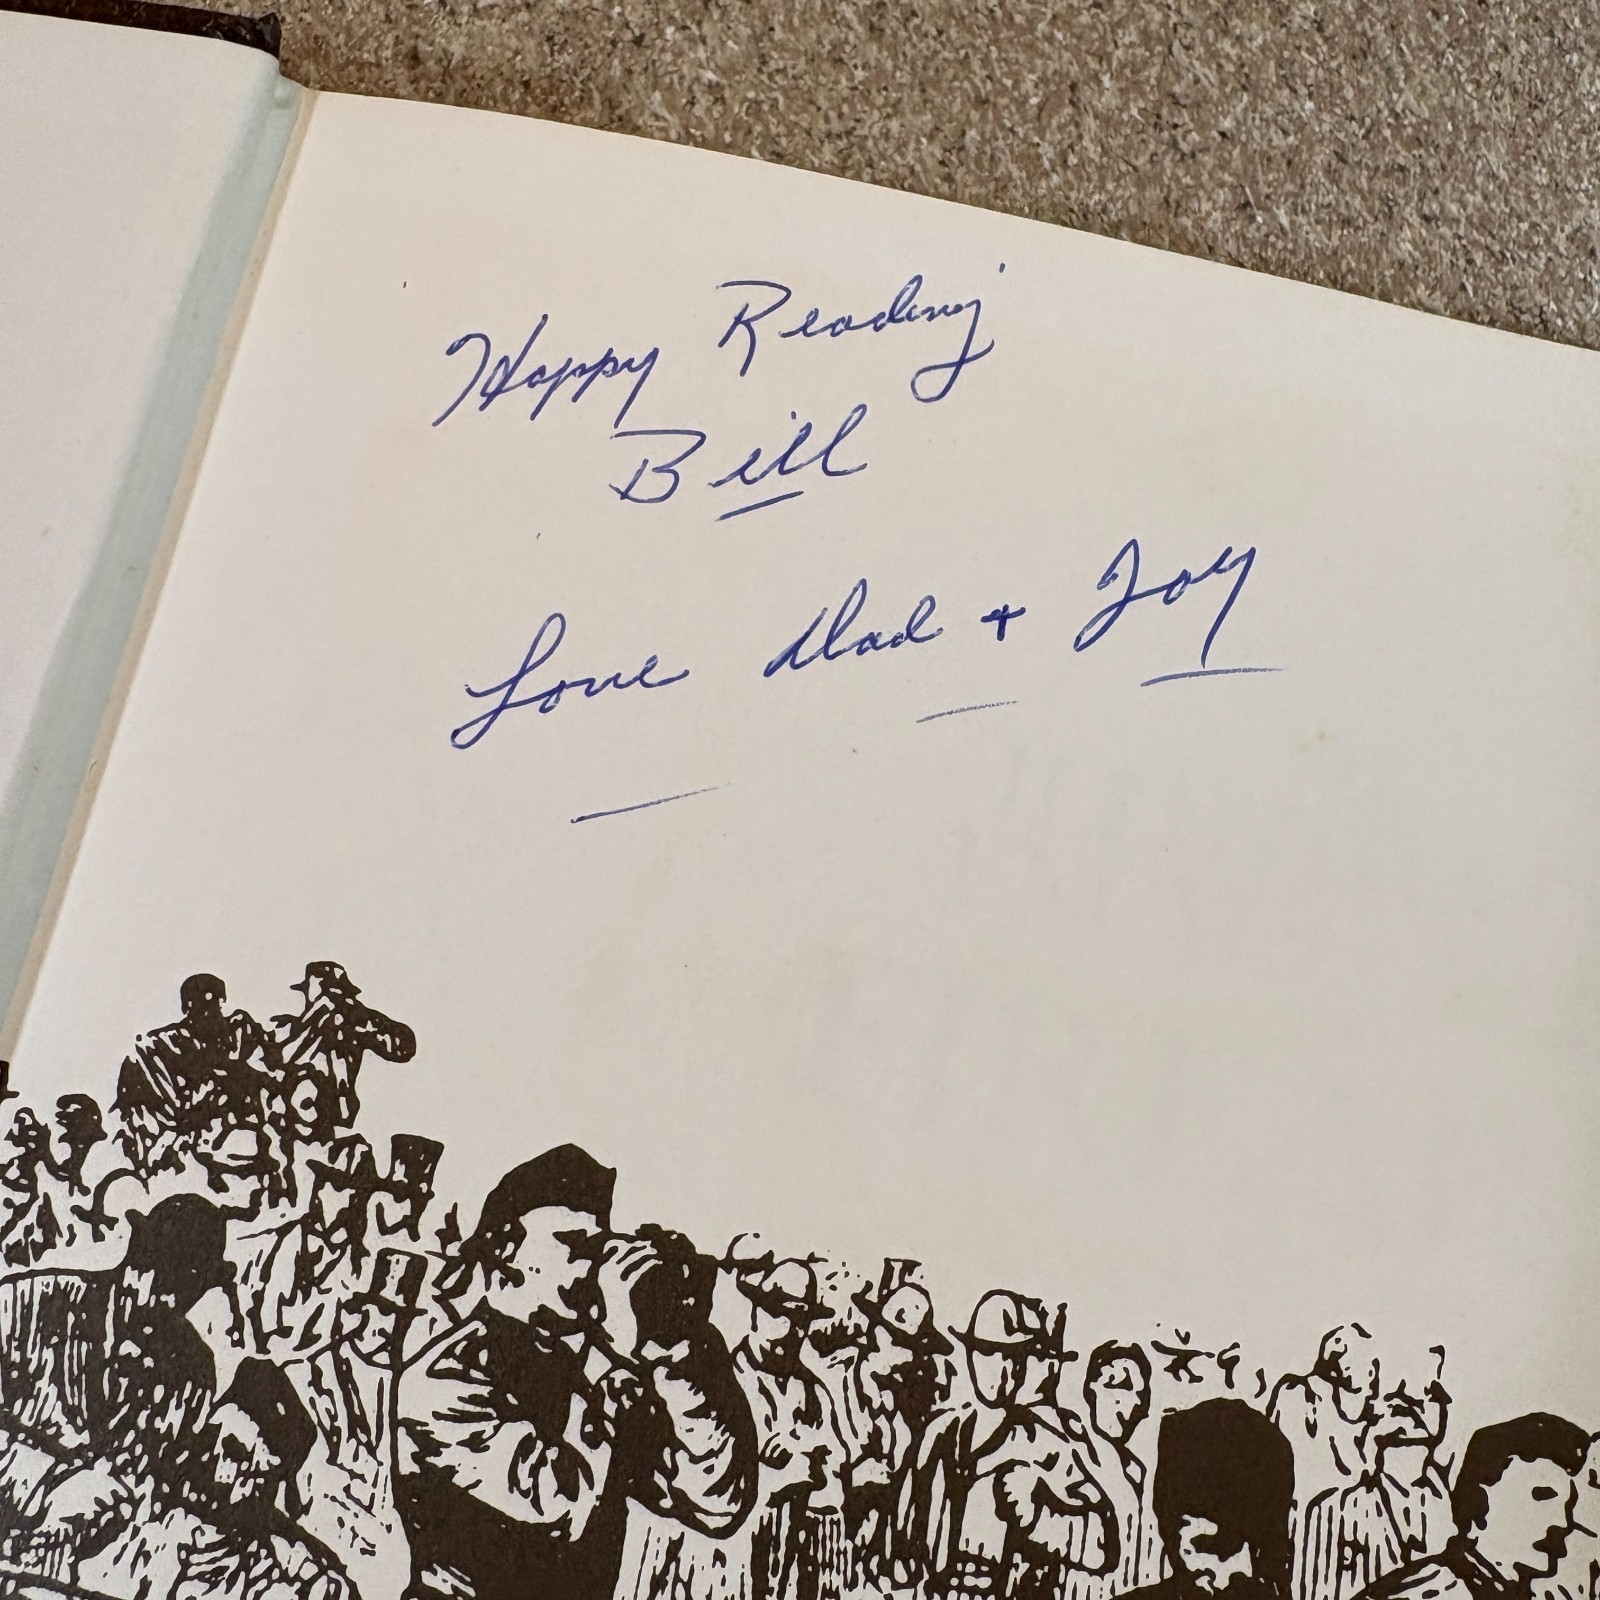 Happy Reading
Bill
Love Dad + Joy